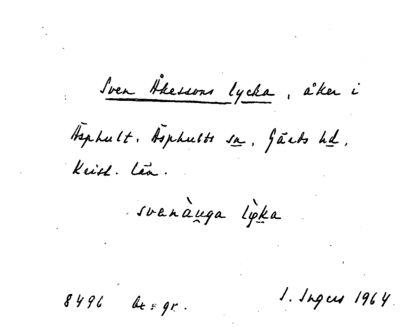 Sven Åkessons lycka, åker i
Äsphult, Äsphults sn, Gärds hd,
Krist. län.
svanàu̯ga lỳka
8496 bt = gr. I. Ingers 1964